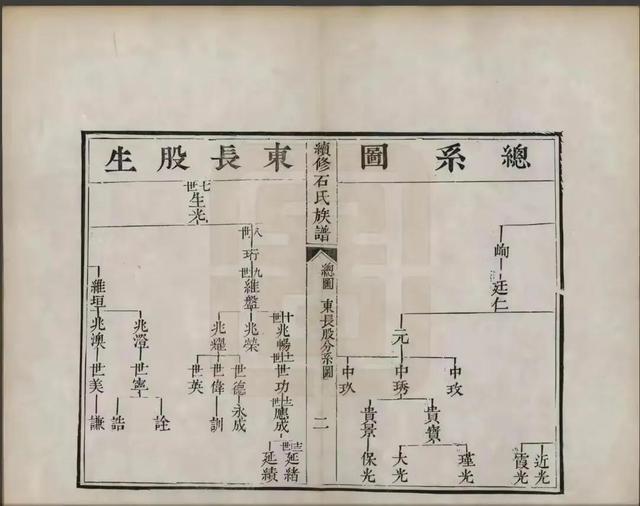 總系圖
峋
廷仁
元
中玫
中琇
中玖
貴賓
貴景
近光
霞光
瑾光
大光
保光
續修石氏族譜
總圖
東長股分系圖
二
東長股生
七世
生光
八世
珩
九世
維盤
維垣
十世
兆暢
兆榮
兆耀
兆澄
兆澳
十一世
世功
世德
世偉
世英
世寧
世美
十二世
應成
永成
訓
詮
誥
謙
十三世
延緒
延績